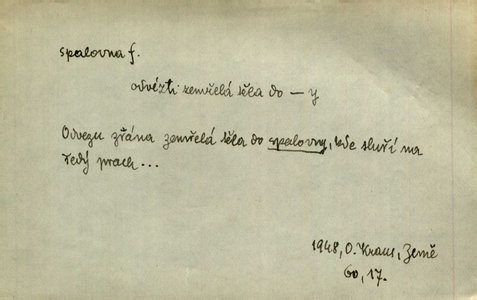 spalovna f.
odvézti zemřelá těla do – y
Odvezu zrána zemřelá těla do spalovny, kde shoří na
šedý prach...
1948, O. Kraus, Země
60, 17.